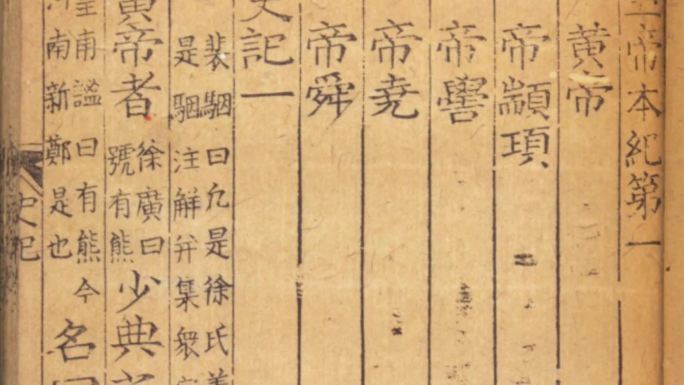 帝本紀第一
黄帝
帝顓頊
帝嚳
帝堯
帝舜
史記一
裴駰曰凡是徐氏義
是駰注解并集衆
黄帝者
徐廣曰
號有熊
少典
皇甫謐曰有熊今
河南新鄭是也
名
史記